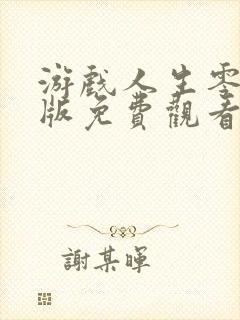 游戲人生零
版免費觀看
謝某暉